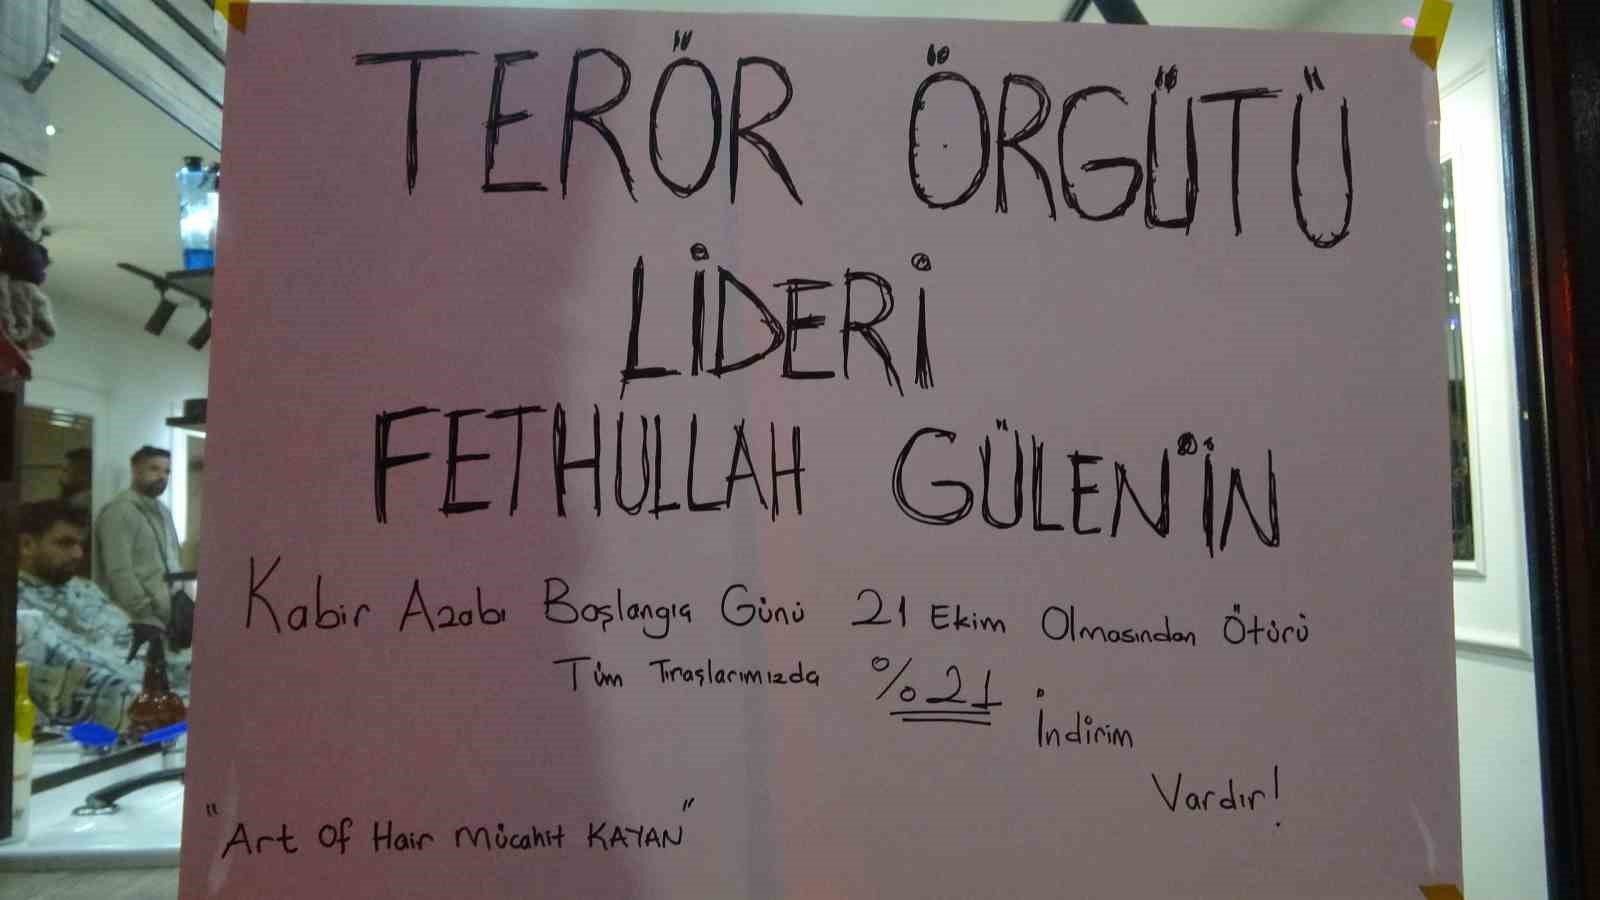 TERÖR ÖRGÜTÜ
LİDERİ
FETHULLAH GÜLEN'İN
Kabir Azabı Başlangıç Günü 21 Ekim Olmasından Ötürü
Tüm Tıraşlarımızda %21 İndirim
Vardır!
"Art Of Hair Mücahit KAYAN"